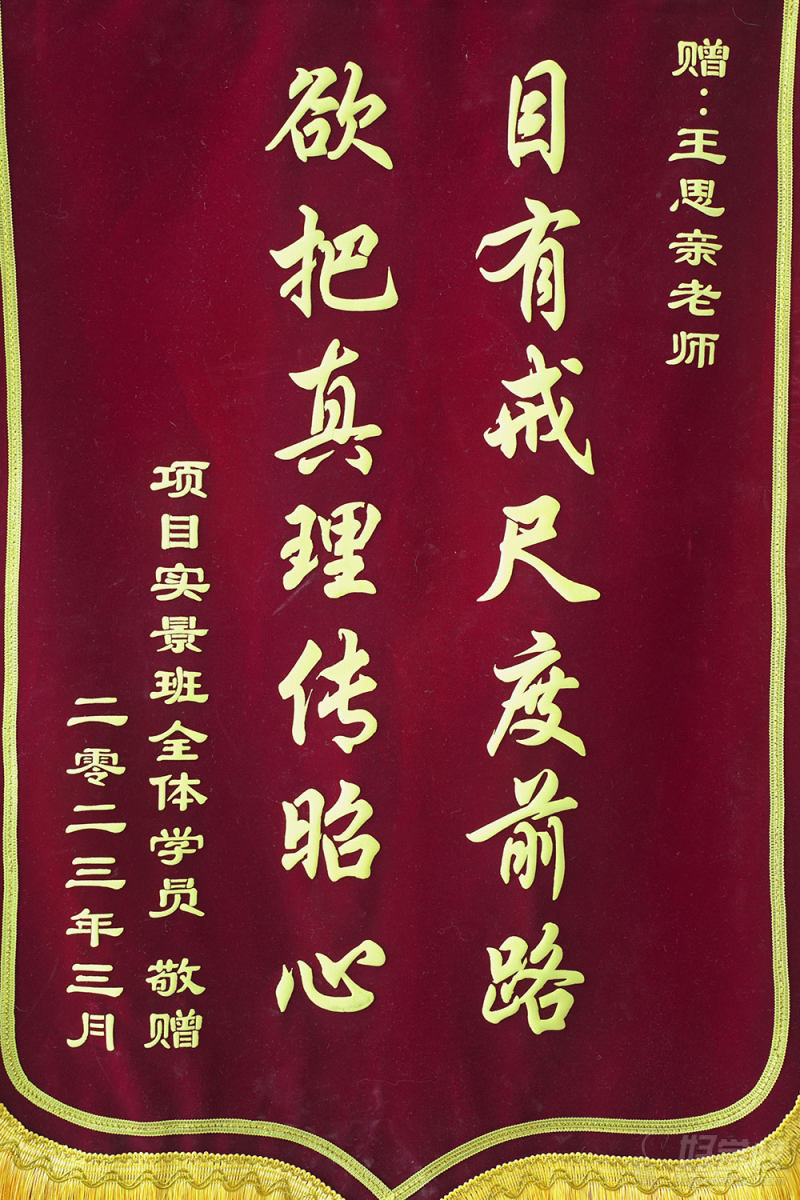 赠：王思亲老师
目有戒尺度前路
欲把真理传昭心
项目实景班全体学员 敬赠
二零二三年三月